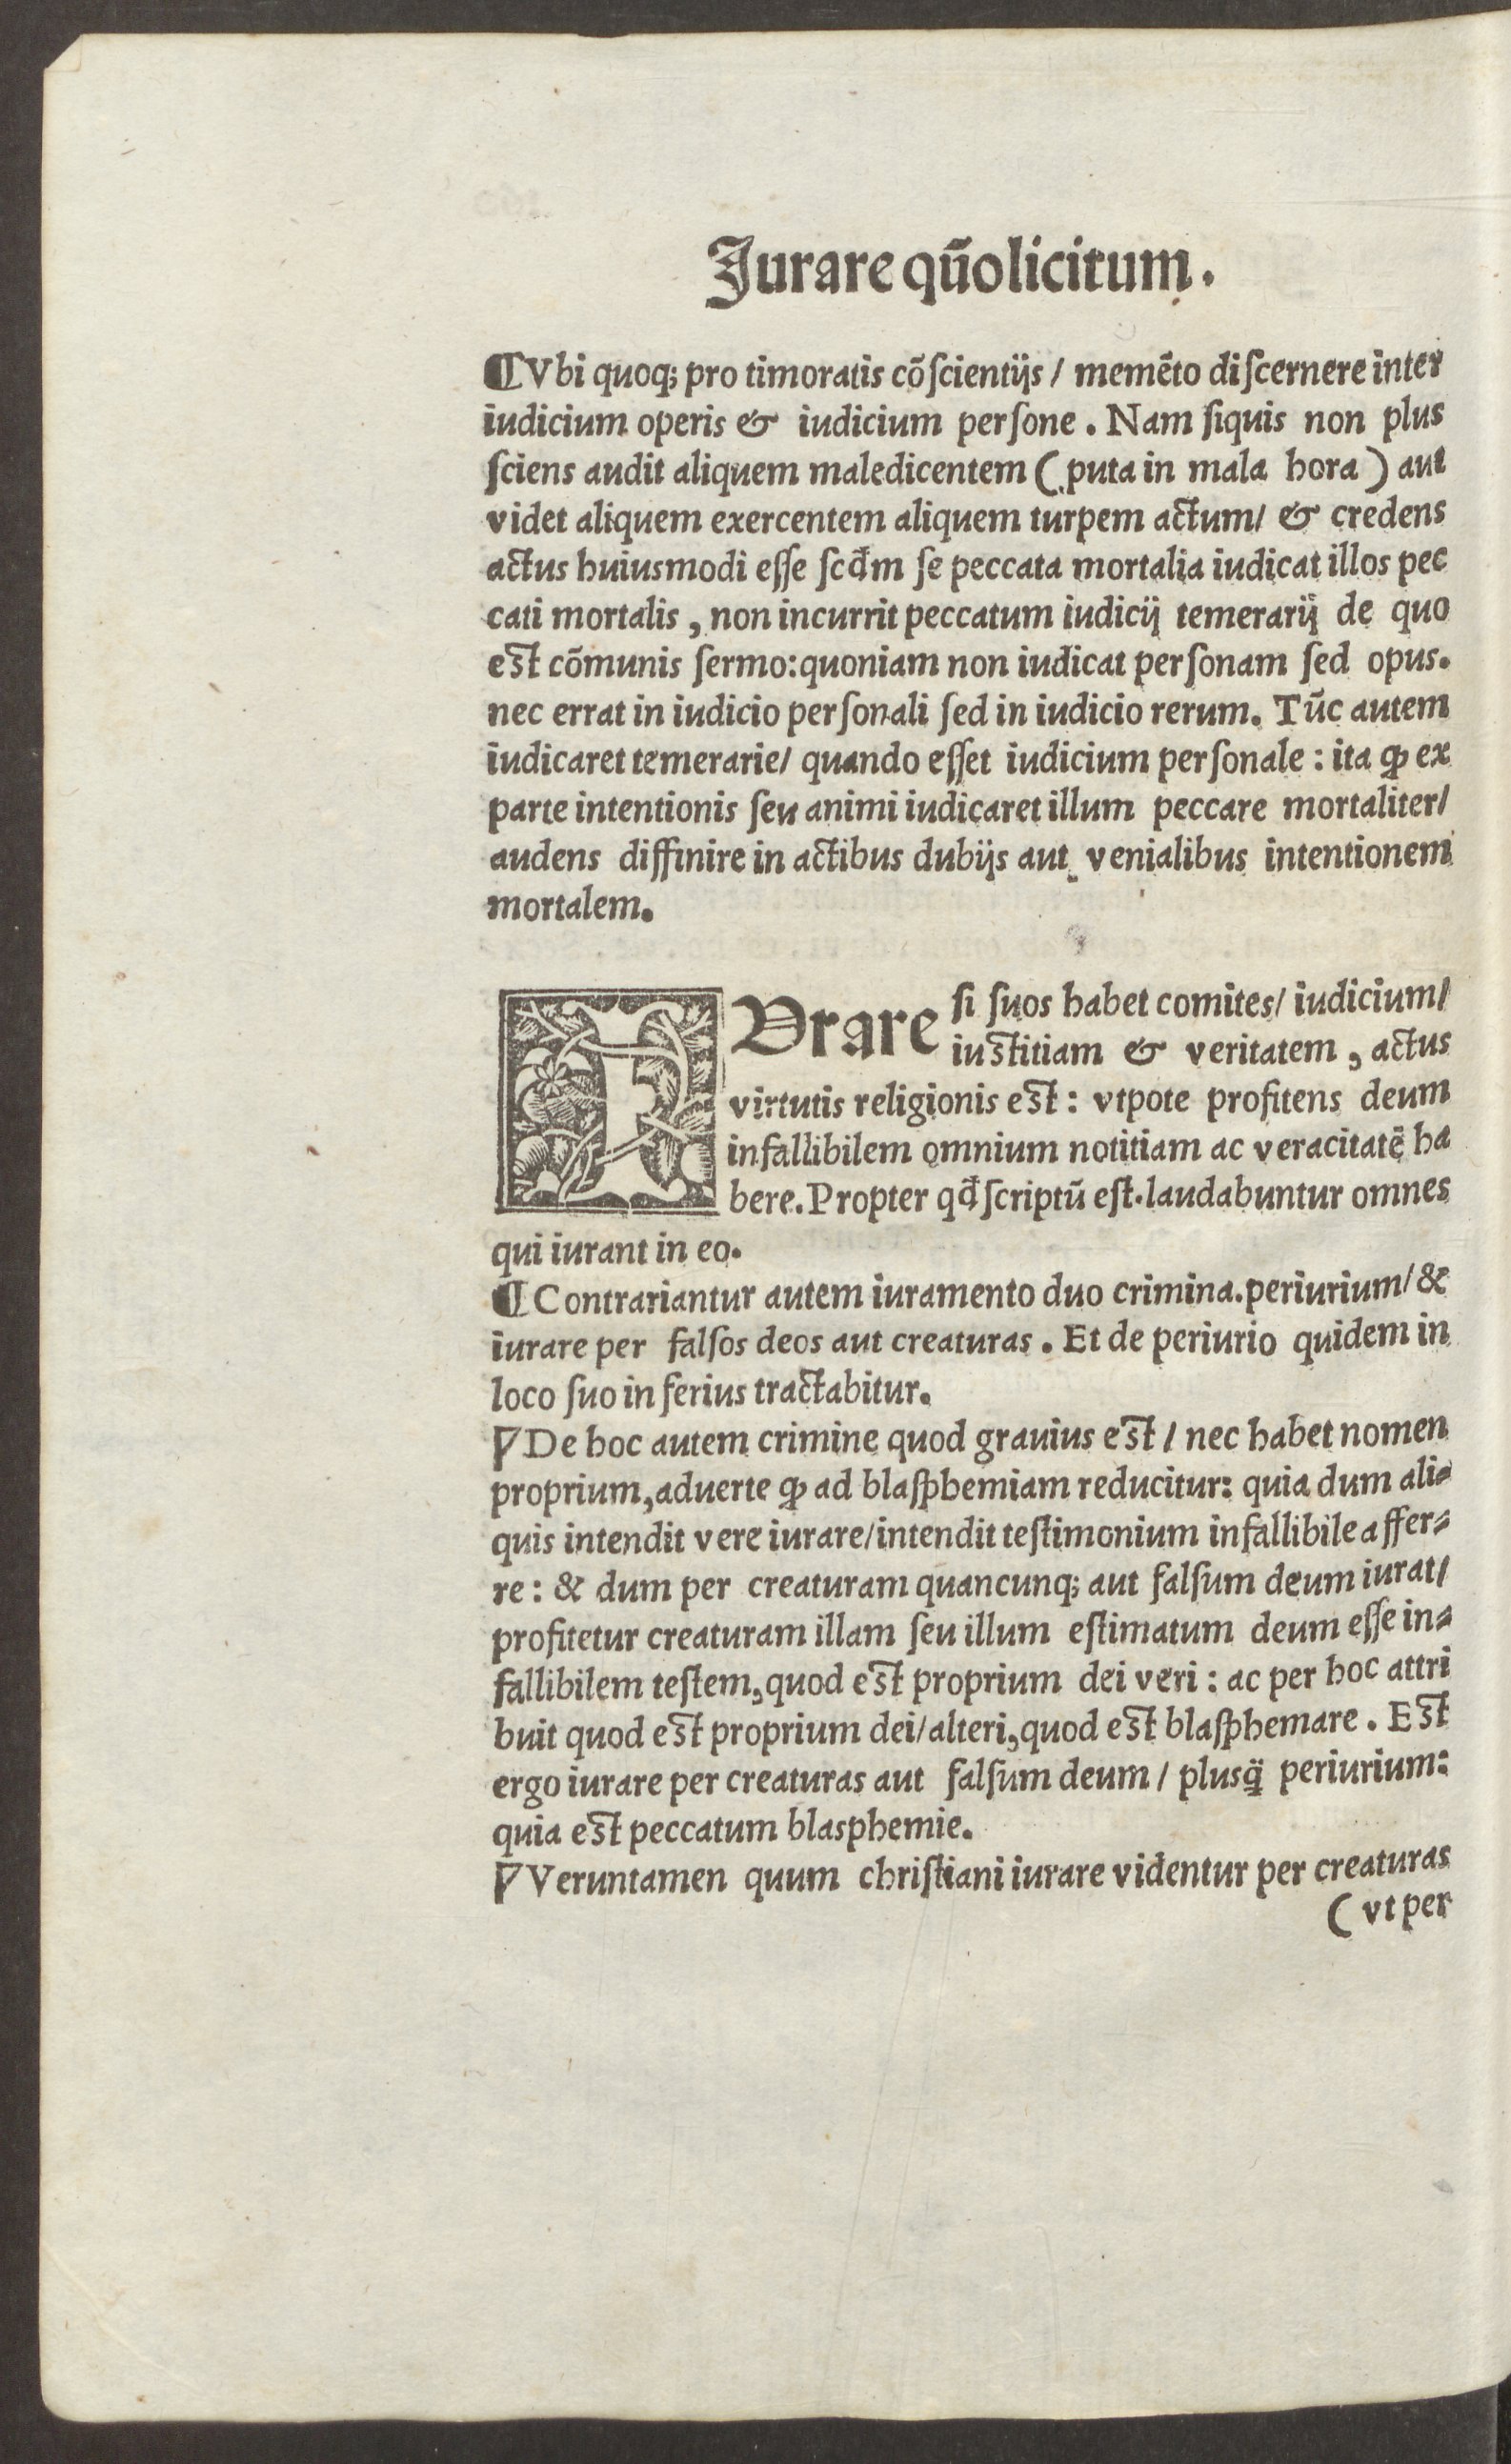 Jurare qũo licitum.
¶ Vbi quoq; pro timoratis cõſcientijs / memẽto diſcernere inter
iudicium operis & iudicium perſone . Nam ſiquis non plus
ſciens audit aliquem maledicentem ( puta in mala hora ) aut
videt aliquem exercentem aliquem turpem actum/ & credens
actus huiusmodi eſſe ſcd̃m ſe peccata mortalia iudicat illos pec
cati mortalis , non incurrit peccatum iudicij temerarij de quo
est cõmunis ſermo: quoniam non iudicat perſonam ſed opus.
nec errat in iudicio perſonali ſed in iudicio rerum. Tũc autem
iudicaret temerarie/ quando eſſet iudicium perſonale : ita ꝙ ex
parte intentionis ſeu animi iudicaret illum peccare mortaliter/
audens diffinire in actibus dubijs aut venialibus intentionem
mortalem.
IVrare ſi ſuos habet comites/ iudicium/
iustitiam & veritatem , actus
virtutis religionis est : vtpote profitens deum
infallibilem omnium notitiam ac veracitatẽ ha
bere. Propter qd̃ ſcriptũ eſt. laudabuntur omnes
qui iurant in eo.
¶ Contrariantur autem iuramento duo crimina. periurium/ &
iurare per falſos deos aut creaturas . Et de periurio quidem in
loco ſuo inferius tractabitur.
ꝡ De hoc autem crimine quod grauius est / nec habet nomen
proprium, aduerte ꝙ ad blaſphemiam reducitur: quia dum ali⸗
quis intendit vere iurare/ intendit teſtimonium infallibile affer⸗
re : & dum per creaturam quancunq; aut falſum deum iurat/
profitetur creaturam illam ſeu illum eſtimatum deum eſſe in⸗
fallibilem teſtem, quod est proprium dei veri : ac per hoc attri
buit quod est proprium dei/ alteri, quod est blaſphemare . Est
ergo iurare per creaturas aut falſum deum / plusq̃ periurium:
quia est peccatum blasphemie.
ꝡ Veruntamen quum chriſtiani iurare videntur per creaturas
( vt per